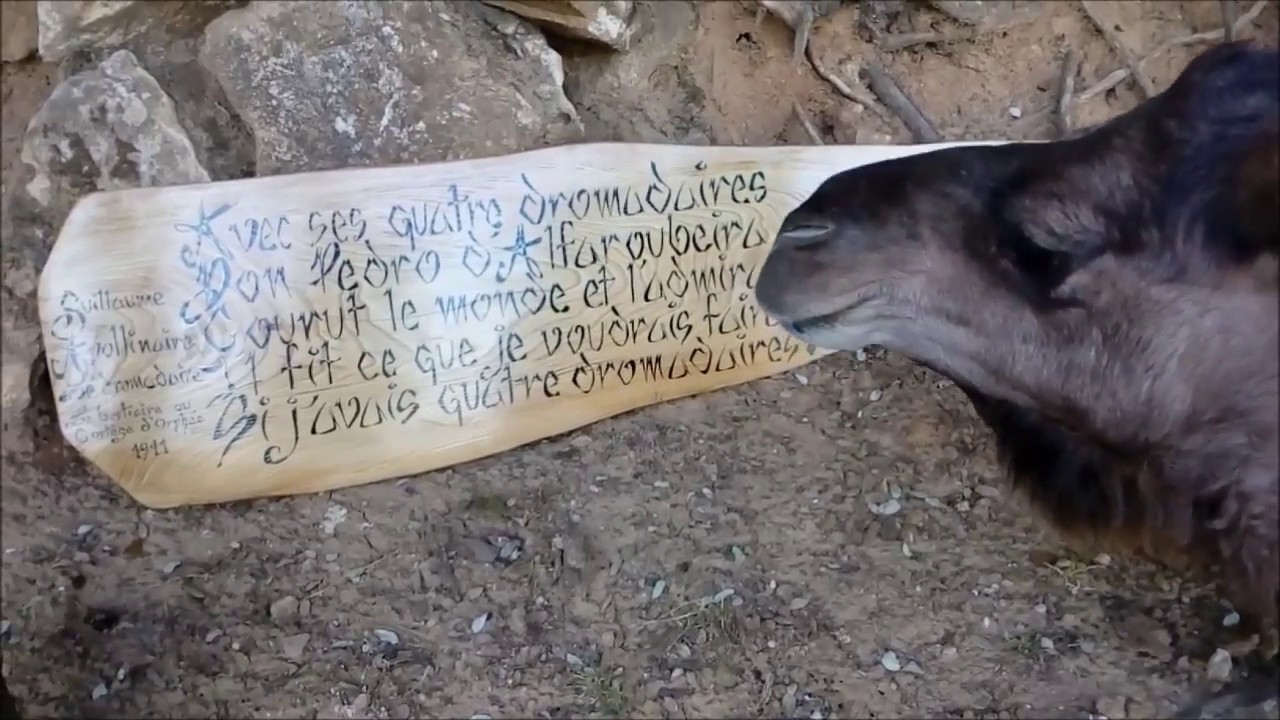 Avec ses quatre dromadaires
Don Pedro d'Alfaroubeira
Courut le monde et l'admira
Il fit ce que je voudrais faire
Si j'avais quatre dromadaires
Guillaume
Apollinaire
Le dromadaire
Le bestiaire ou
Cortège d'Orphée
1911